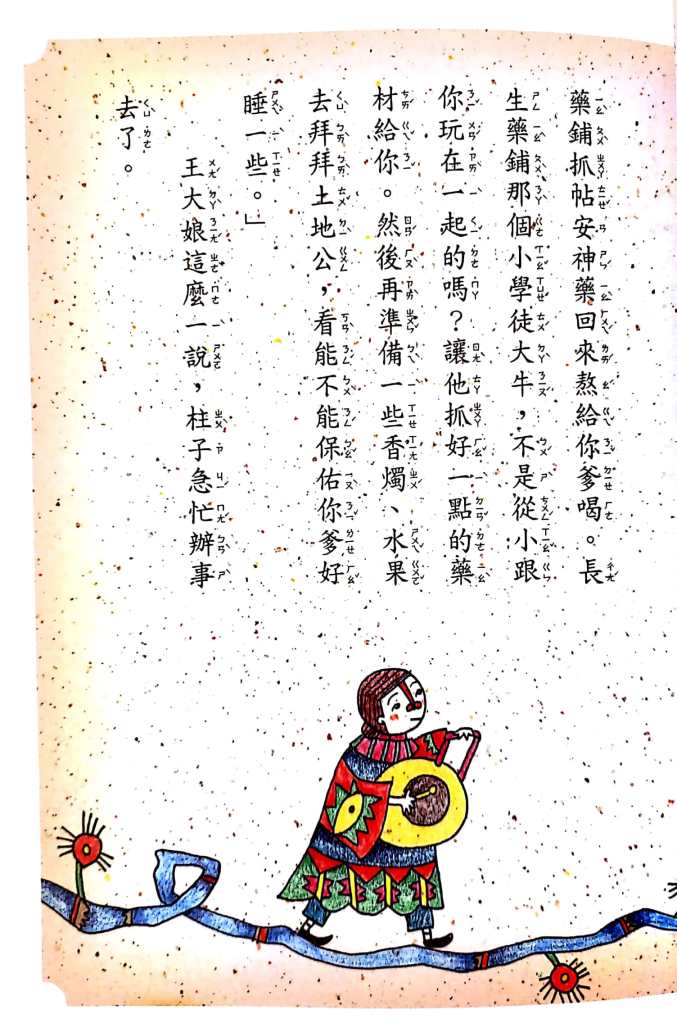 藥鋪抓帖安神藥回來熬給你爹喝。長
生藥鋪那個小學徒大牛，不是從小跟
你玩在一起的嗎？讓他抓好一點的藥
材給你。然後再準備一些香燭、水果
去拜拜土地公，看能不能保佑你爹好
睡一些。」
王大娘這麼一說，柱子急忙辦事
去了。